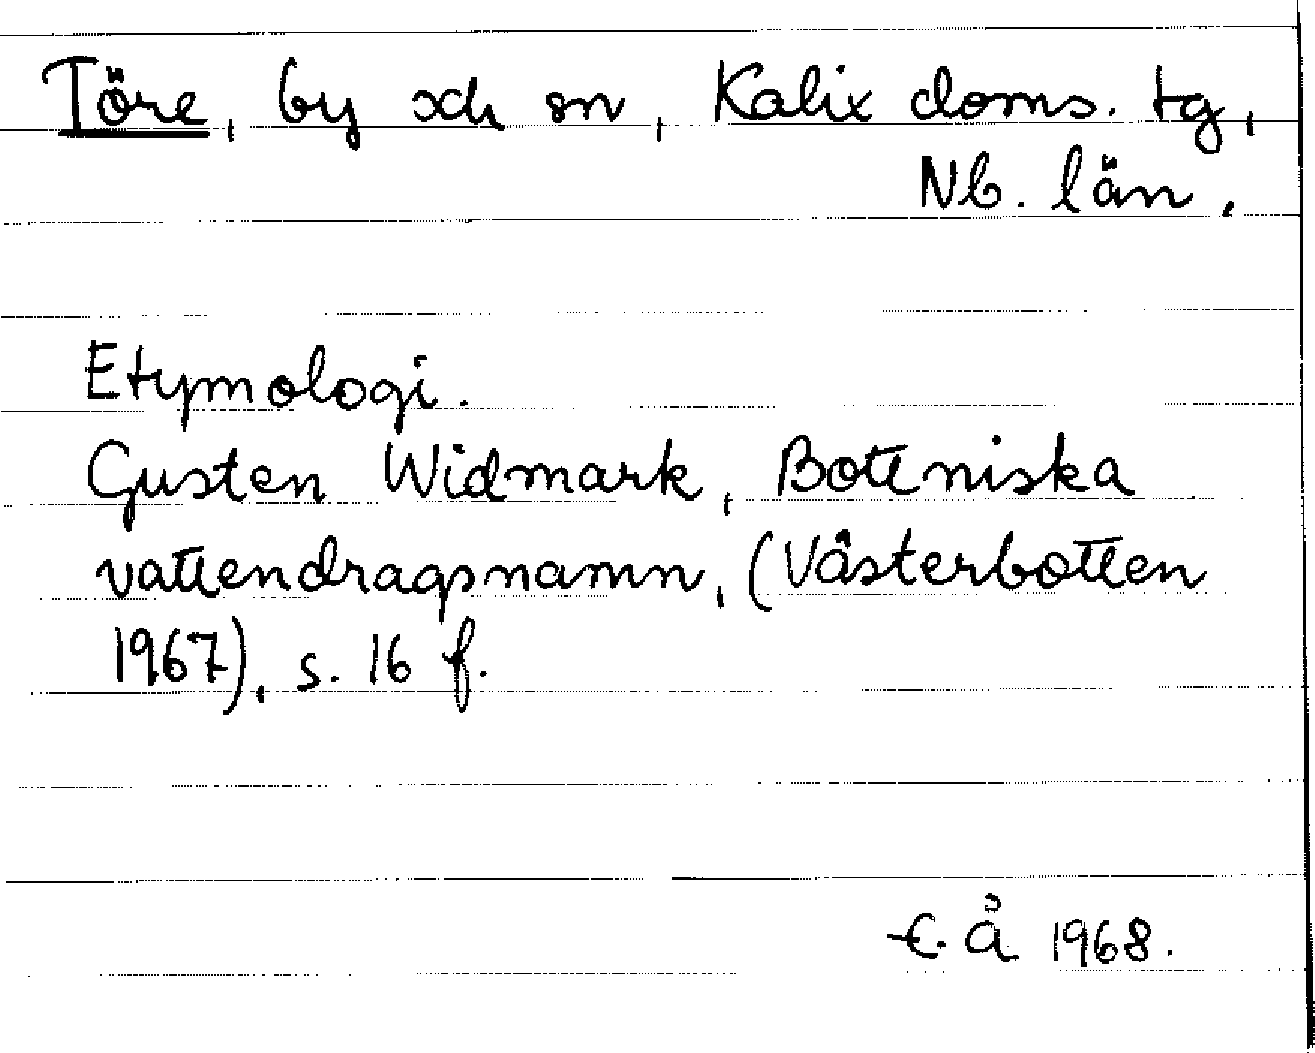 Töre, by och sn, Kalix doms. tg,
Nb. län.
Etymologi.
Gusten Widmark, Bottniska
vattendragsnamn, (Västerbotten
1967), s. 16 f.
E. Å 1968.